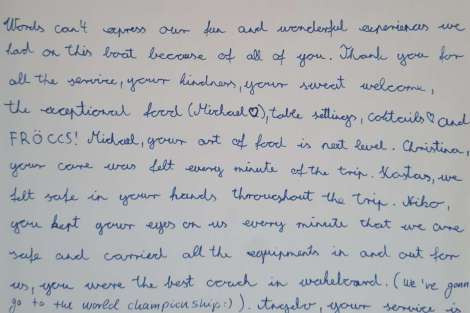 Words can't express our fun and wonderful experiences we
had on this boat because of all of you. Thank you for
all the service, your kindness, your sweat welcome,
the exceptional food (Michael♡), table settings, coctails♡ and
FRÖCCS! Michael, your art of food is next level. Christina,
your care was felt every minute of the trip. Kostas, we
felt safe in your hands throughout the trip. Niko,
you kept your eyes on us every minute that we are
safe and carried all the equipments in and out for
us, you were the best coach in wakeboard. (We've gonna
go to the world championship:) ). Angelo, your service is